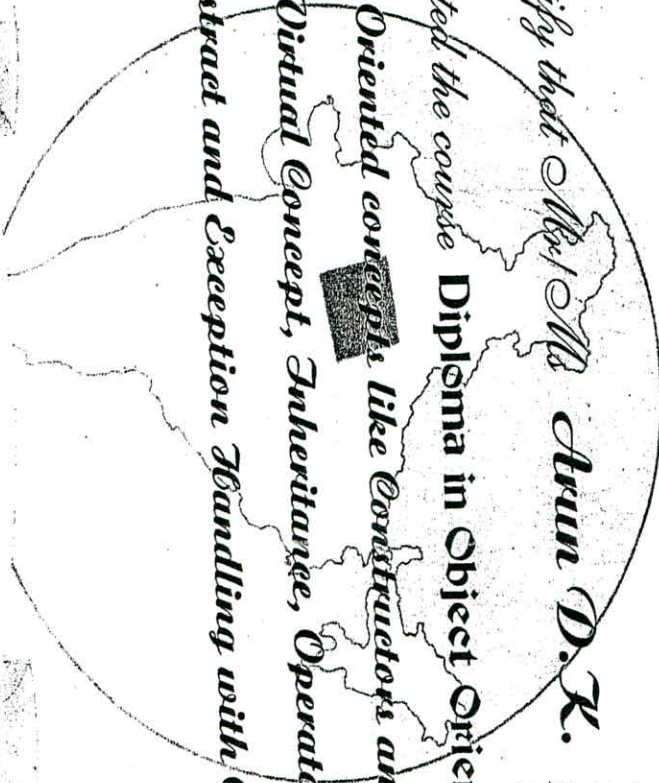 ify that Mr/Ms Arun D.K.
ted the course Diploma in Object Orie
Oriented concepts like Constructors an
Virtual Concept, Inheritance, Operat
stract and Exception Handling with